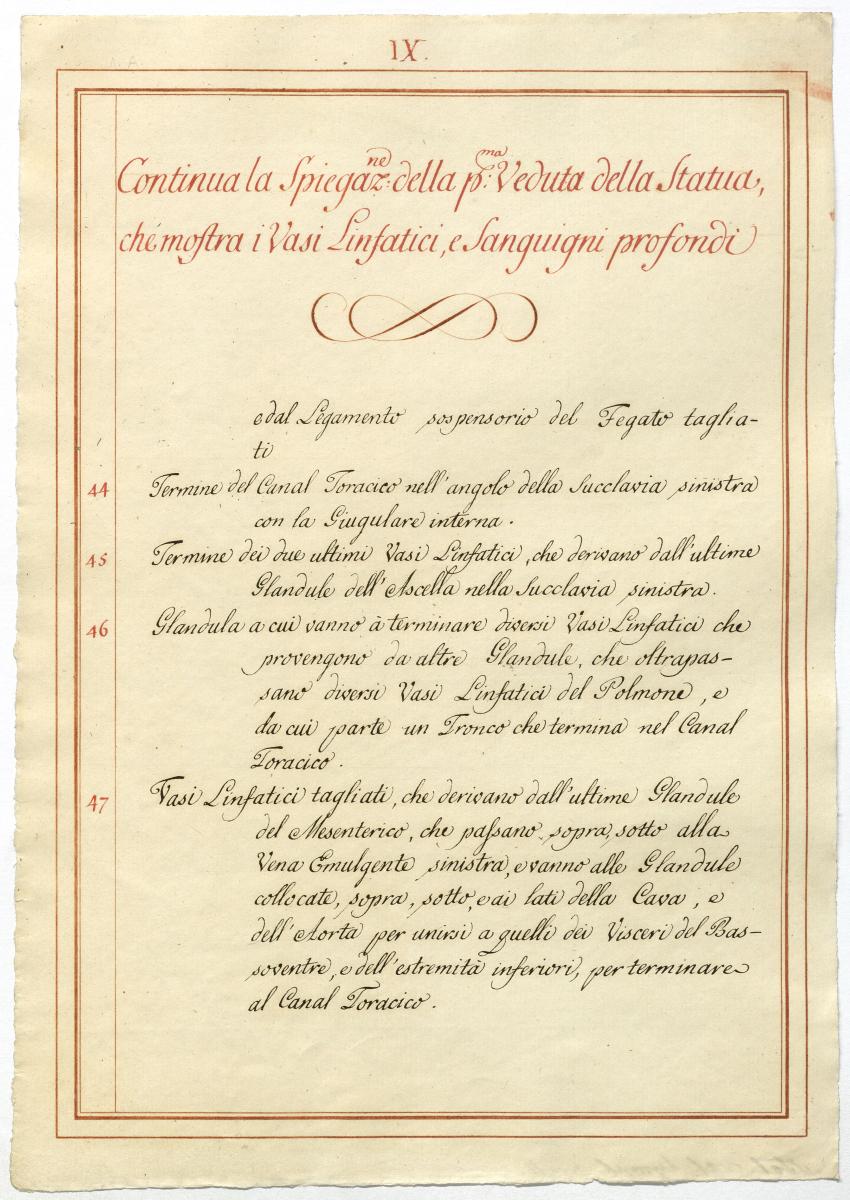 IX.
Continua la Spiegaz:ne della p:ma Veduta della Statua,
ché mostra i Vasi Linfatici, e Sanguigni profondi
e dal Legamento sospensorio del Fegato taglia-
ti
44 Termine del Canal Toracico nell'angolo della Succlavia sinistra
con la Giugulare interna.
45 Termine dei due ultimi Vasi Linfatici, che derivano dall'ultime
Glandule dell'Ascella nella Succlavia sinistra.
46 Glandula a cui vanno à terminare diversi Vasi Linfatici che
provengono da altre Glandule, che oltrapas-
sano diversi Vasi Linfatici del Polmone, e
da cui parte un Tronco che termina nel Canal
Toracico.
47 Vasi Linfatici tagliati, che derivano dall'ultime Glandule
del Mesenterico, che passano sopra, sotto alla
Vena Emulgente sinistra, e vanno alle Glandule
collocate, sopra, sotto, e ai lati della Cava, e
dell'Aorta per unirsi a quelli dei Visceri del Bas-
soventre, e dell'estremità inferiori, per terminare
al Canal Toracico.